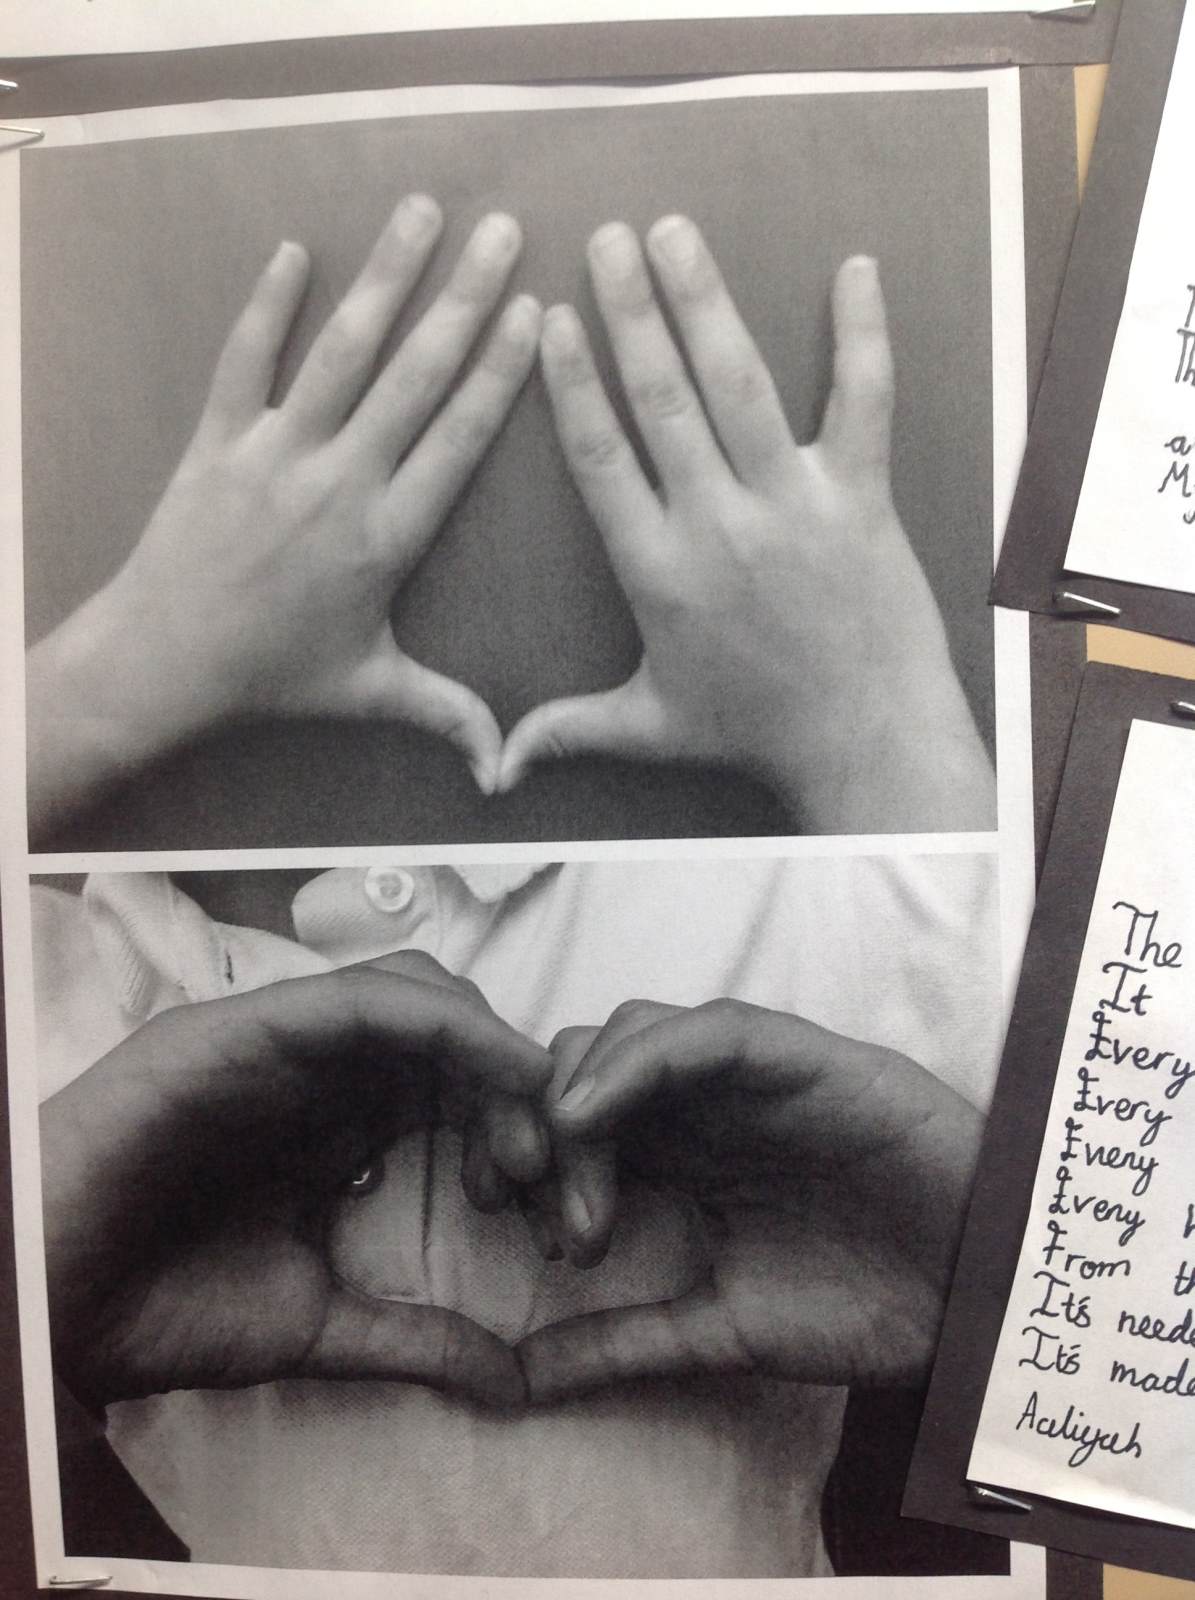 Th
a
The
It
Every
Every
Every
Every
From th
It's neede
It's made
Aaliyah